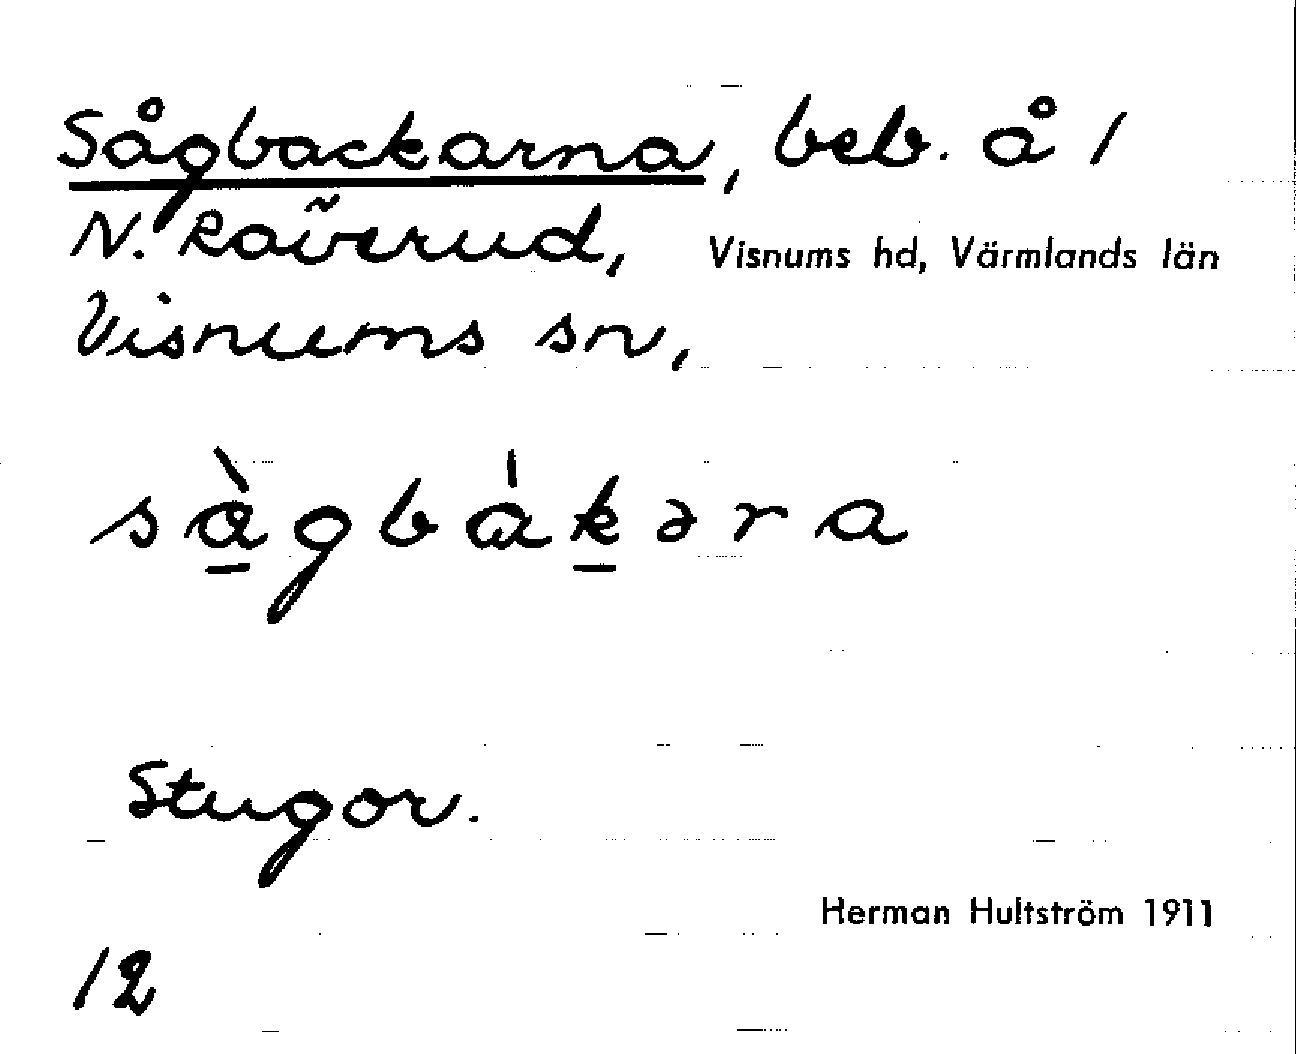 Sågbackarna, beb. å 1
N. Råverud, Visnums hd, Värmlands län
Visnums sn,
sàgbákəra
Stugor.
Herman Hultström 1911
12